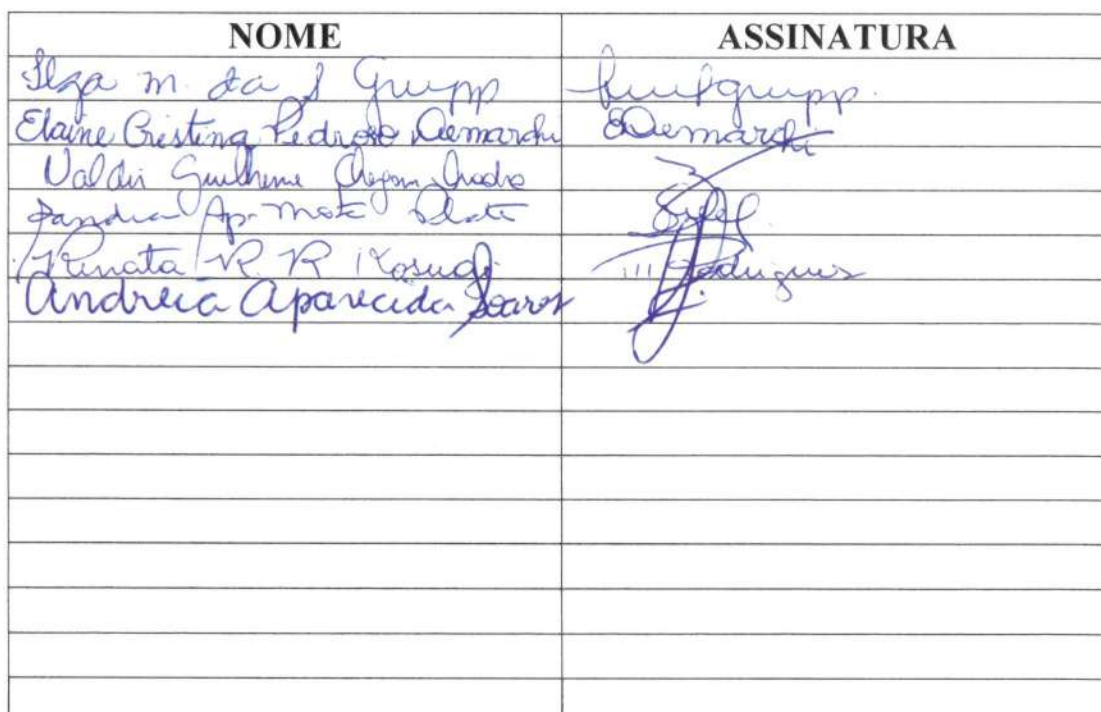 NOME ASSINATURA
Ilza m. da S Grupp grupp.
Elaine Cristina Pedroso Demarchi EDemarchi
Valdir Guilherme
Sandra Ap. Mota
Renata R. R Kosugi Rodrigues
Andreia Aparecida Soares